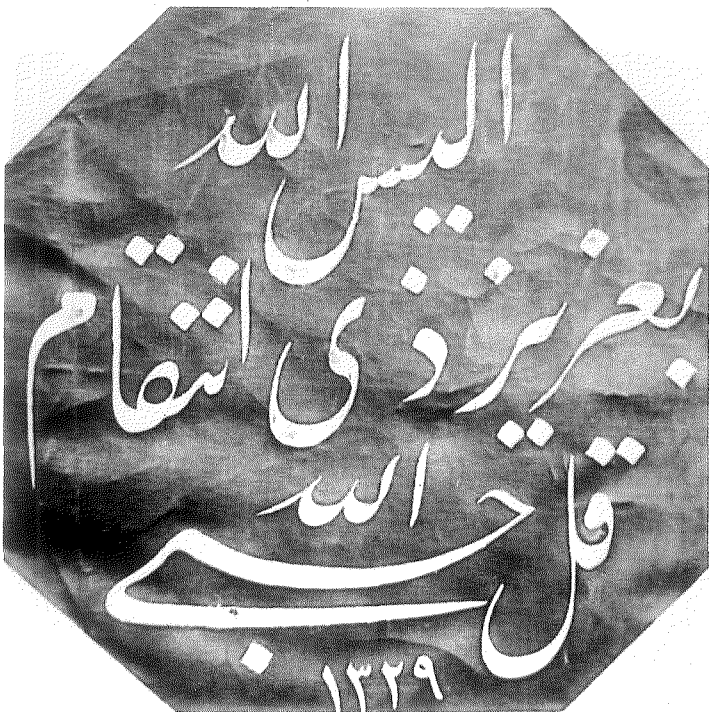 اليس الله
بعزيز ذى انتقام
قل حسبى الله
١٣٢٩